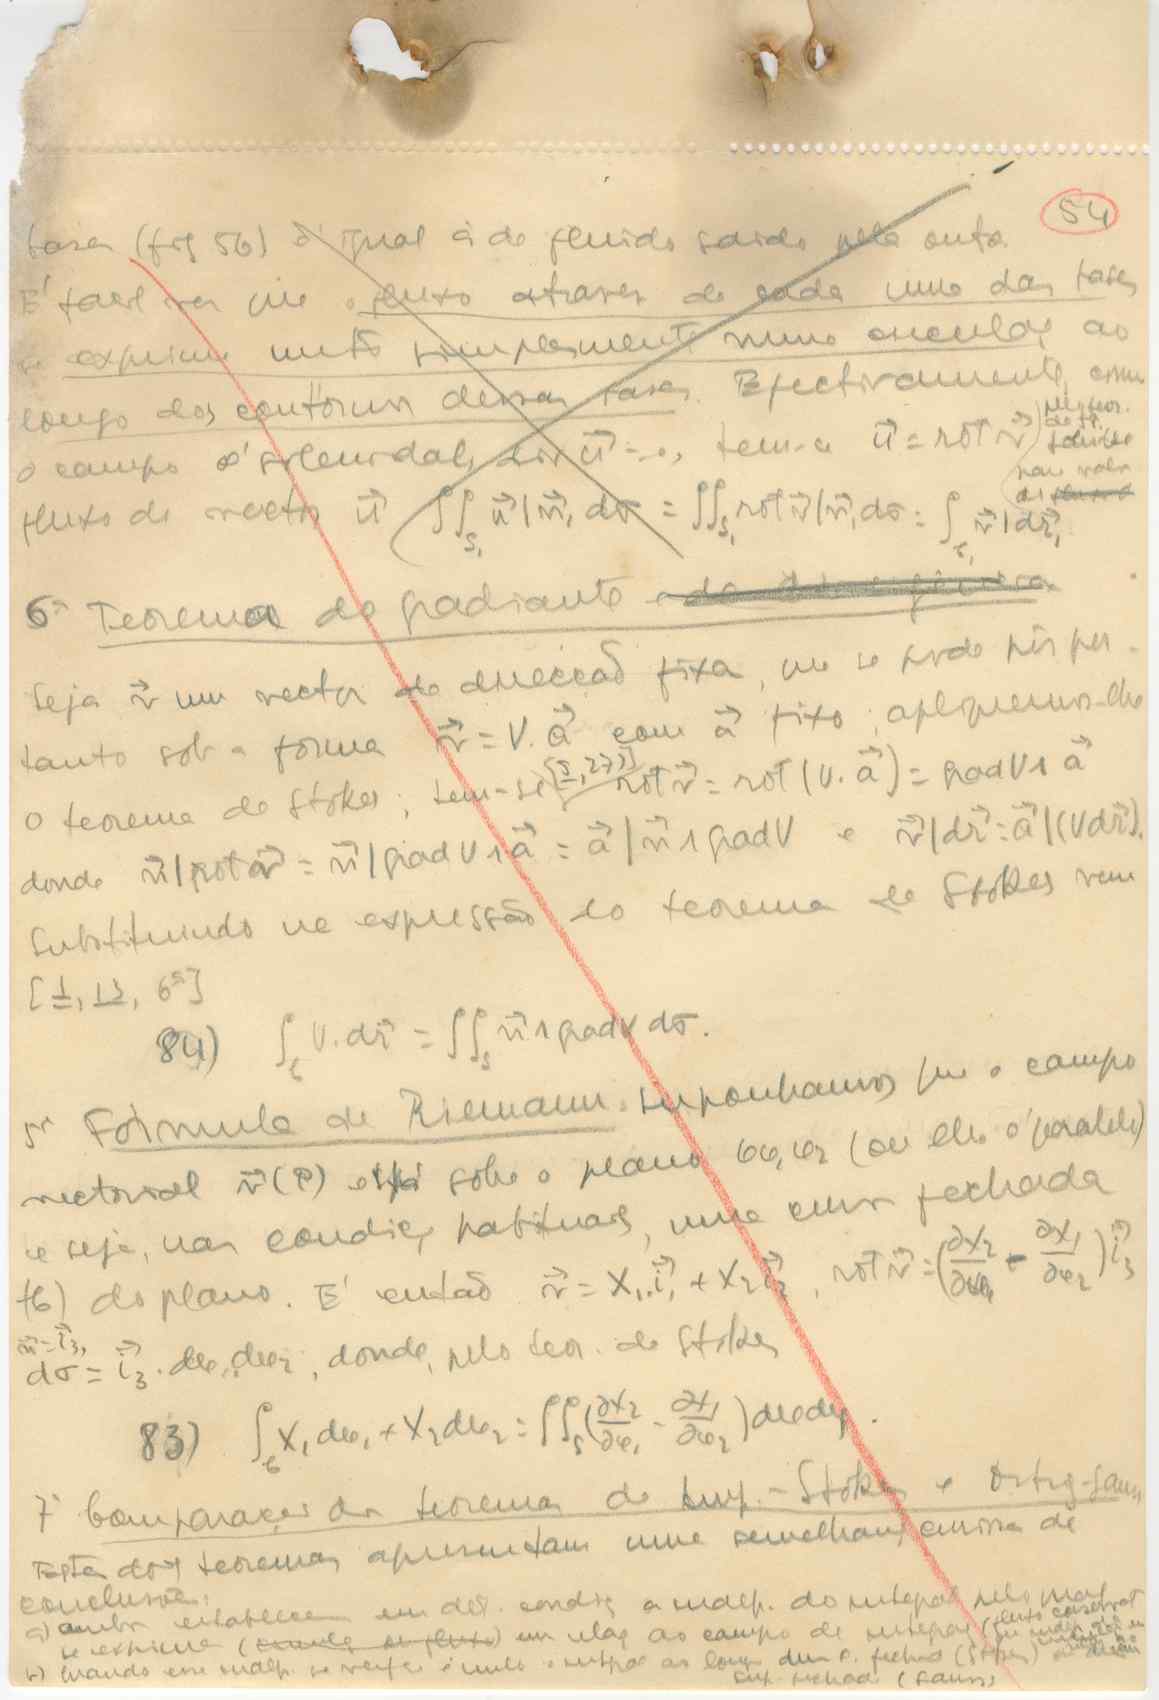 54
base (fig 56) é igual à do fluido saido pela outra.
É facil ver que o fluxo atraves de cada uma das bases
se exprime muito simplesmente numa circulação ao
longo dos contornos dessas bases. Efectivamente, como
o campo é solenoidal, div u⃗ = 0, tem-se u⃗ = rot v⃗ pelo teor. de St.
fluxo do vector u⃗ ∫∫_{S₁} u⃗|n⃗₁dσ = ∫∫_{S₁} rot v⃗|n⃗₁dσ = ∫_{c₁} v⃗|dr⃗₁
6º Teorema do gradiante
Seja v⃗ um vector de direcção fixa, que se pode pôr por-
tanto sob a forma v⃗ = V.a⃗ com a⃗ fixo; apliquemos-lhe
o teorema de Stokes; tem-se [I, 27)] rot v⃗ = rot (V.a⃗) = grad V∧a⃗
donde n⃗|rot v⃗ = n⃗|grad V∧a⃗ = a⃗|n⃗∧grad V e v⃗|dr⃗ = a⃗|(Vdr⃗).
Substituindo na expressão do teorema de Stokes vem
[1, 13, 6º]
84) ∫_c V.dr⃗ = ∫∫_S n⃗∧grad V dσ.
5º Fórmula de Riemann. Suponhamos que o campo
vectorial v⃗(P) está sobre o plano ox₁x₂ (ou lhe é paralelo)
e seja, nas condições habituais, uma curva fechada
(c) do plano. É então v⃗ = X₁.i⃗₁ + X₂i⃗₂, rot v⃗ = (∂X₂/∂x₁ - ∂X₁/∂x₂) i⃗₃
n⃗ = i⃗₃,
dσ = i⃗₃.dx₁dx₂, donde, pelo teor. de Stokes
83) ∫_c X₁dx₁ + X₂dx₂ = ∫∫_S (∂X₂/∂x₁ - ∂X₁/∂x₂) dx₁dx₂.
7º Comparação dos teoremas de Amp.-Stokes e Ostrg-Gauss
Estes dois teoremas apresentam uma semelhança curiosa de
conclusões:
a) ambos estabelecem em det. condiç. a indep. do integral pelo qual
se exprime em relaç. ao campo de integraç.
b) Quando essa indep. se verifica é nulo o integral ao longo duma c. fechada (Stokes)
sup. fechada (Gauss)